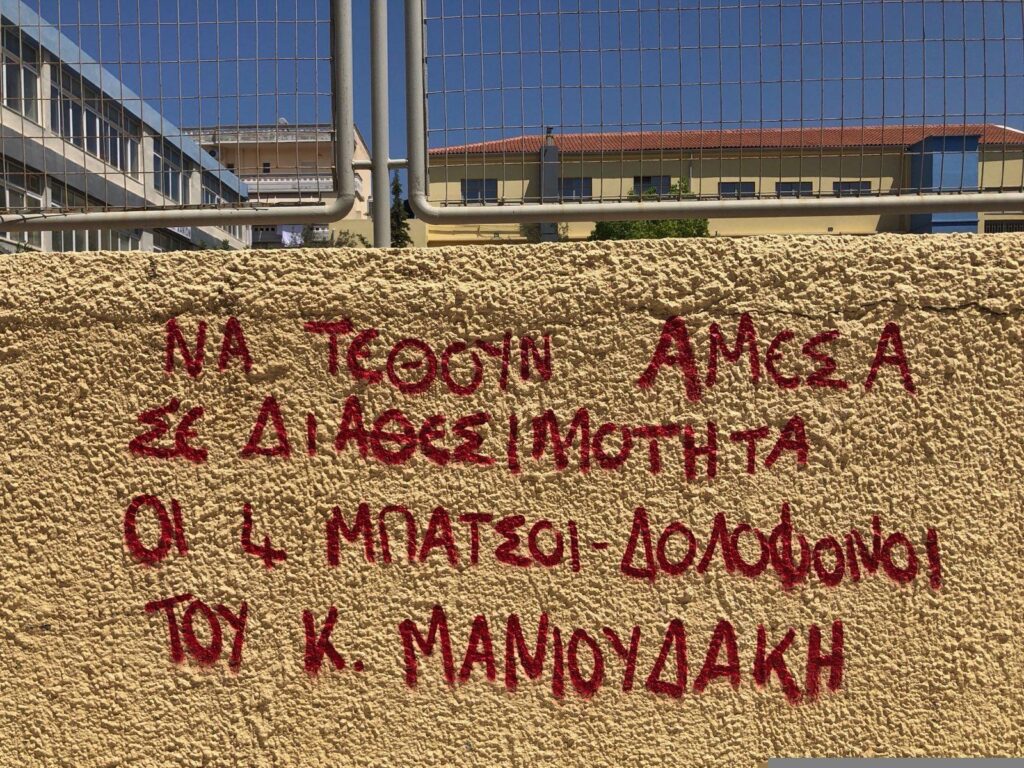 ΝΑ ΤΕΘΟΥΝ ΑΜΕΣΑ
ΣΕ ΔΙΑΘΕΣΙΜΟΤΗΤΑ
ΟΙ 4 ΜΠΑΤΣΟΙ-ΔΟΛΟΦΟΝΟΙ
ΤΟΥ Κ. ΜΑΝΙΟΥΔΑΚΗ